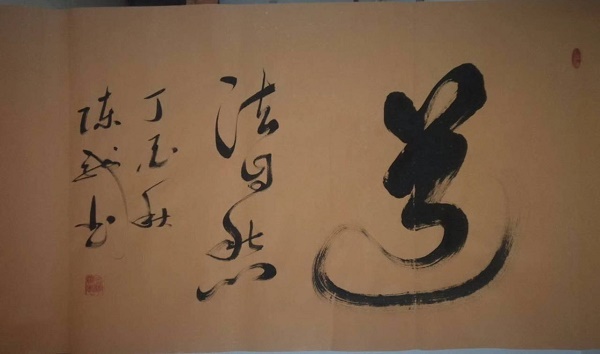 道
法自然
丁酉秋
陈武书